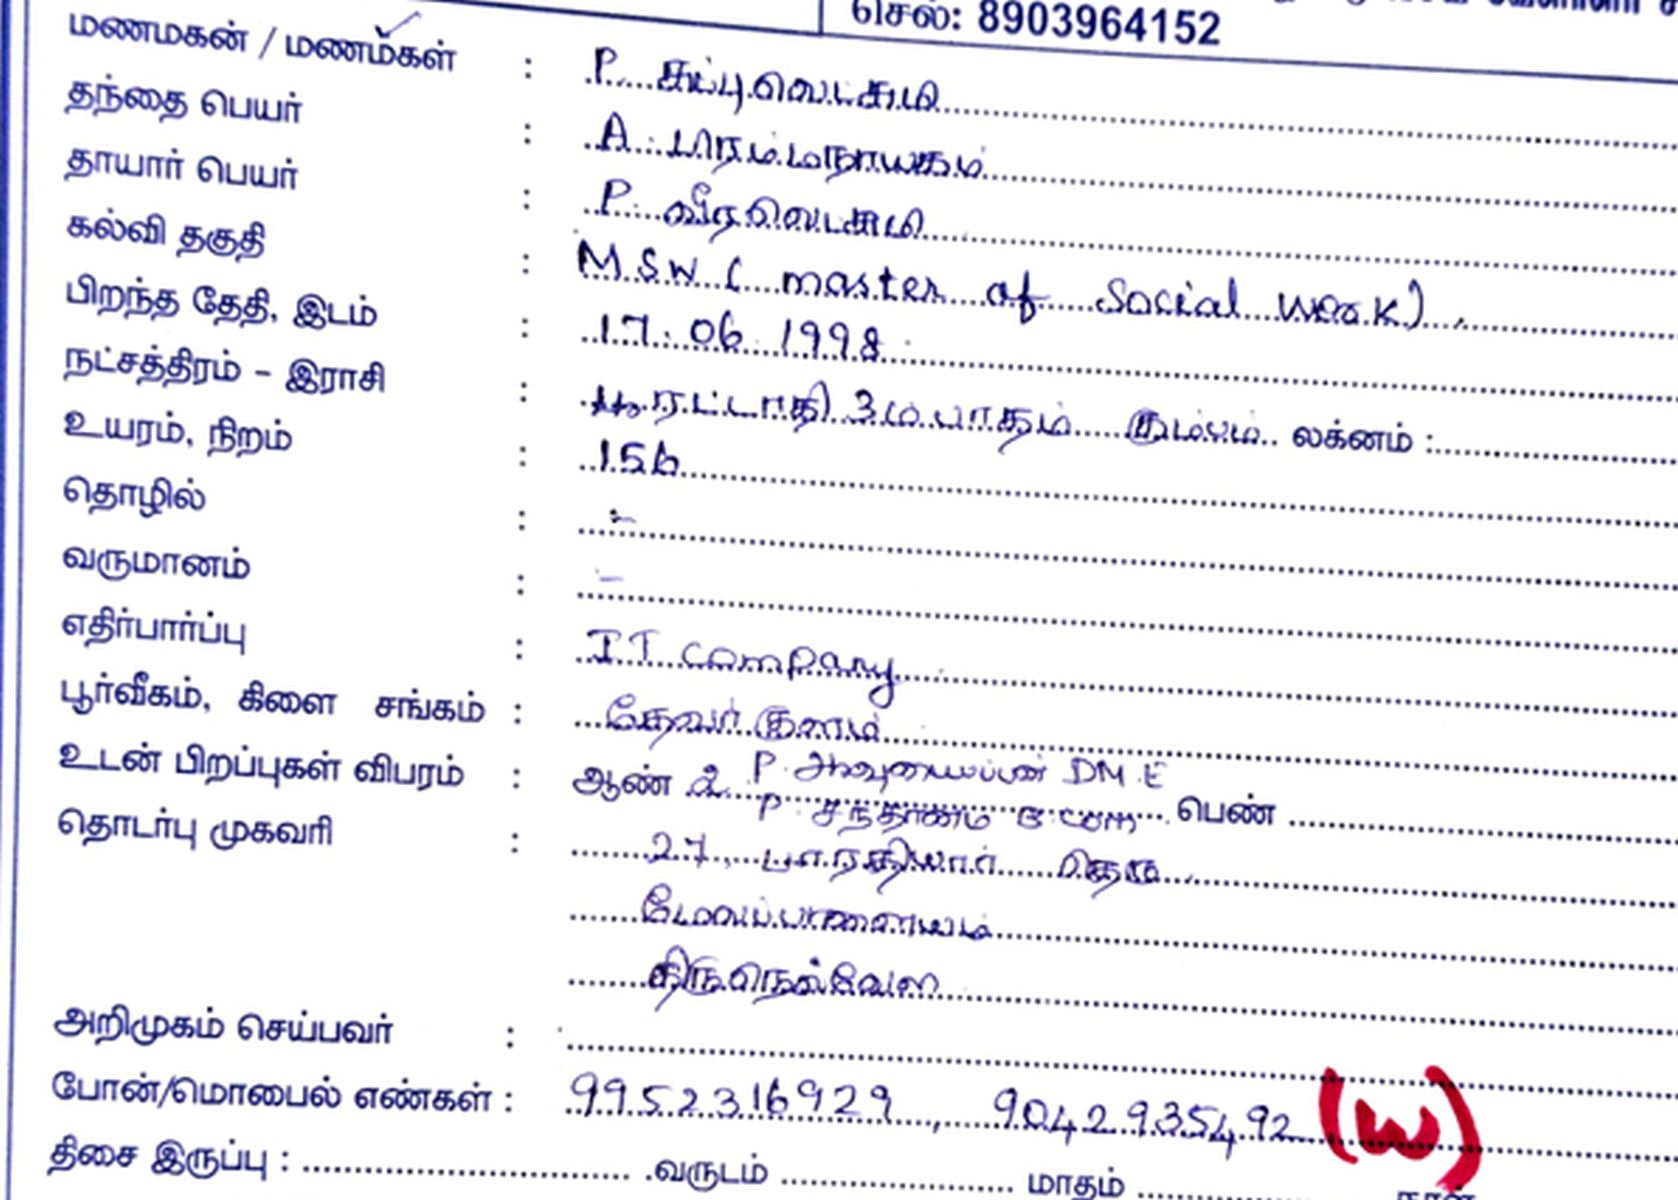 செல்: 8903964152
மணமகன் / மணமகள் : P. சுப்புலெட்சுமி
தந்தை பெயர் : A. பிரம்மநாயகம்
தாயார் பெயர் : P. வீரலெட்சுமி
கல்வி தகுதி : M.S.W ( master of Social Work )
பிறந்த தேதி, இடம் : 17. 06. 1998
நட்சத்திரம் – இராசி : பூரட்டாதி 3ம் பாதம் கும்பம் லக்னம் :
உயரம், நிறம் : 156
தொழில் : -
வருமானம் : -
எதிர்பார்ப்பு : IT company
பூர்வீகம், கிளை சங்கம் : தேவர் குளம்
உடன் பிறப்புகள் விபரம் : ஆண் 2 P. DM E பெண்
P. சந்தானம் B.com
தொடர்பு முகவரி : 27, பாரதியார் தெரு
மேலப்பாளையம்
திருநெல்வேலி
அறிமுகம் செய்பவர் :
போன்/மொபைல் எண்கள் : 9952316929, 9042935492 (W)
திசை இருப்பு : வருடம் மாதம் நாள்